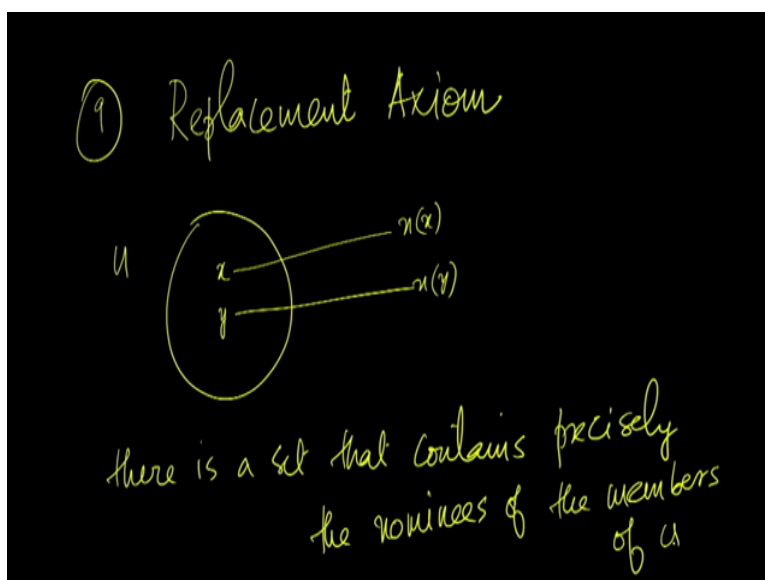 9 Replacement Axiom
n(x)
U x
n(y)
y
there is a set that contains precisely
the nominees of the members
of U